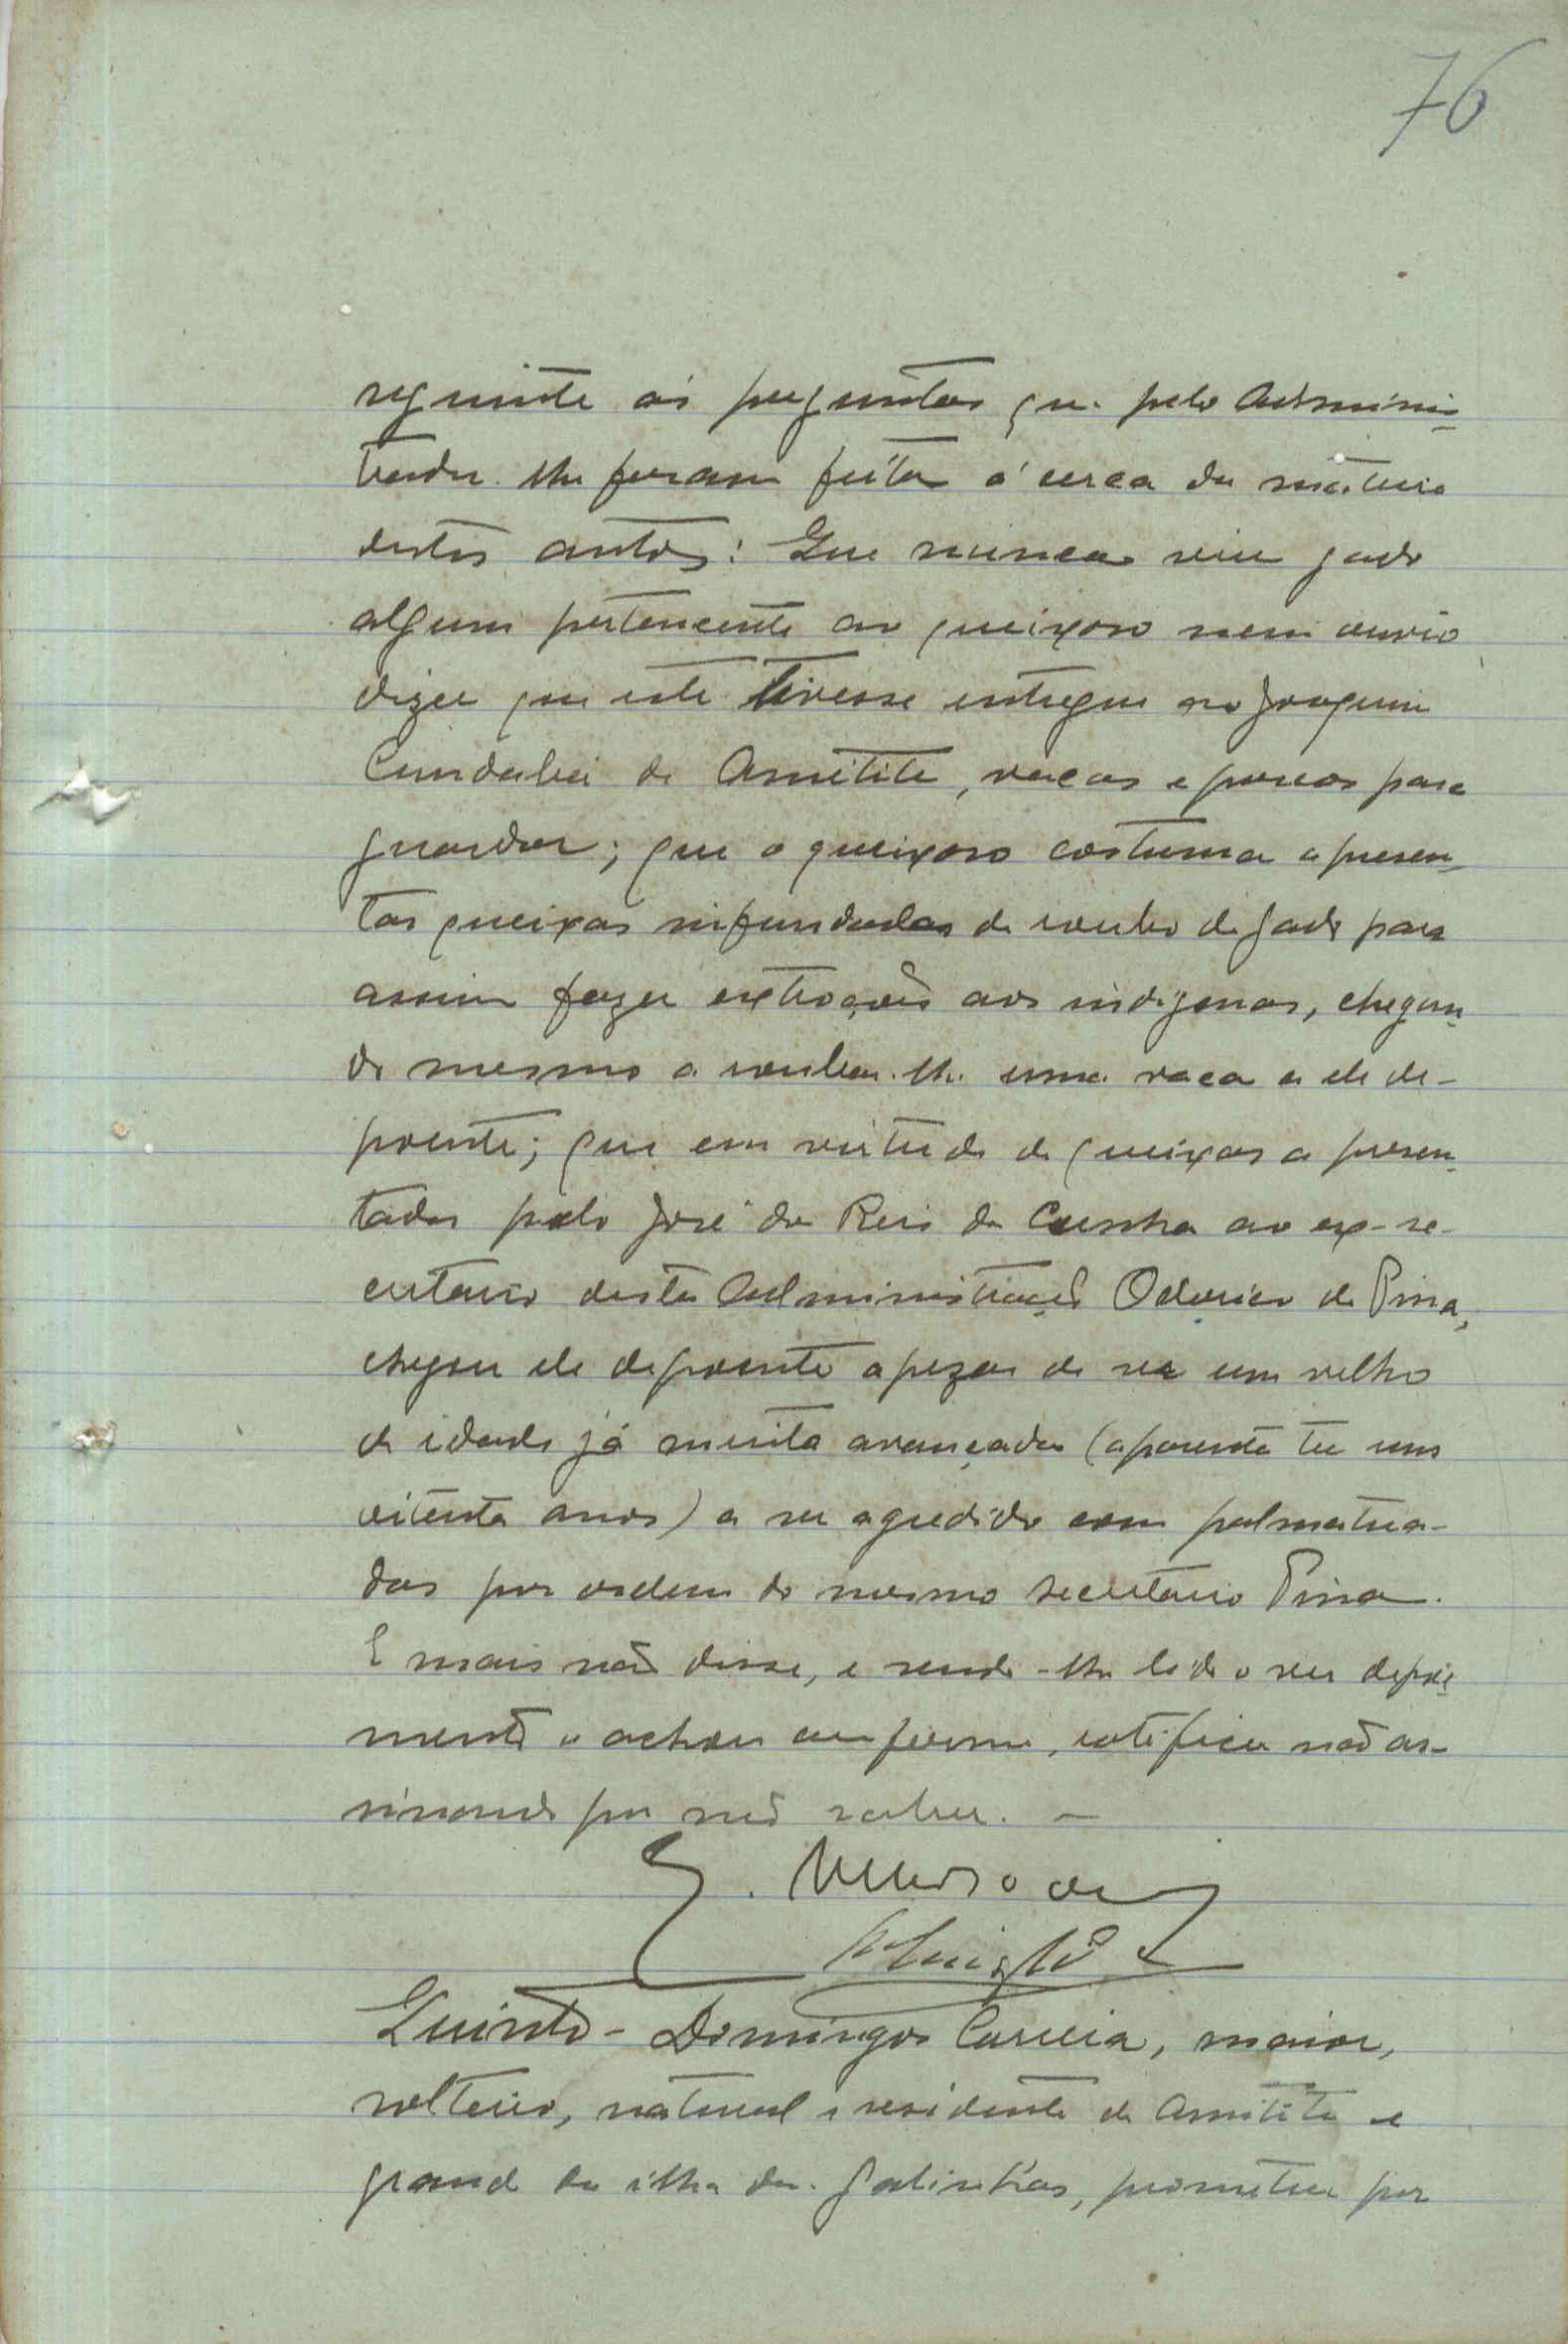 76
seguinte ás preguntas que pelo Adminis-
trador lhe foram feitas ácerca da matéria
destes autos: Que nunca viu gado
algum pertencente ao queixoso nem ouviu
dizer que este tivesse entregue ao Joaquim
de Ametite, vacas e porcos para
guardar; que o queixoso costuma apresen-
tar queixas infundadas de roubo de gado para
assim fazer extroções aos indigenas, chegan-
do mesmo a roubar-lhe uma vaca a ele de-
poente; que em virtude de queixas apresen-
tadas pelo José dos Reis da Cunha ao ex-se-
cretario desta Administração Odorico de Pina,
chegou ele depoente apezar de ser um velho
de idade já muito avançada (aparenta ter uns
oitenta anos) a ser agredido com palmatoa-
das por ordem do mesmo secretário Pina.
E mais não disse, e sendo-lhe lido o seu depoi-
mento o achou conforme, ratifica não as-
sinando por não saber. —
Quinto - Domingos Correia, maior,
solteiro, natural e residente de Ametite e
grande da ilha das Galinhas, prometeu por